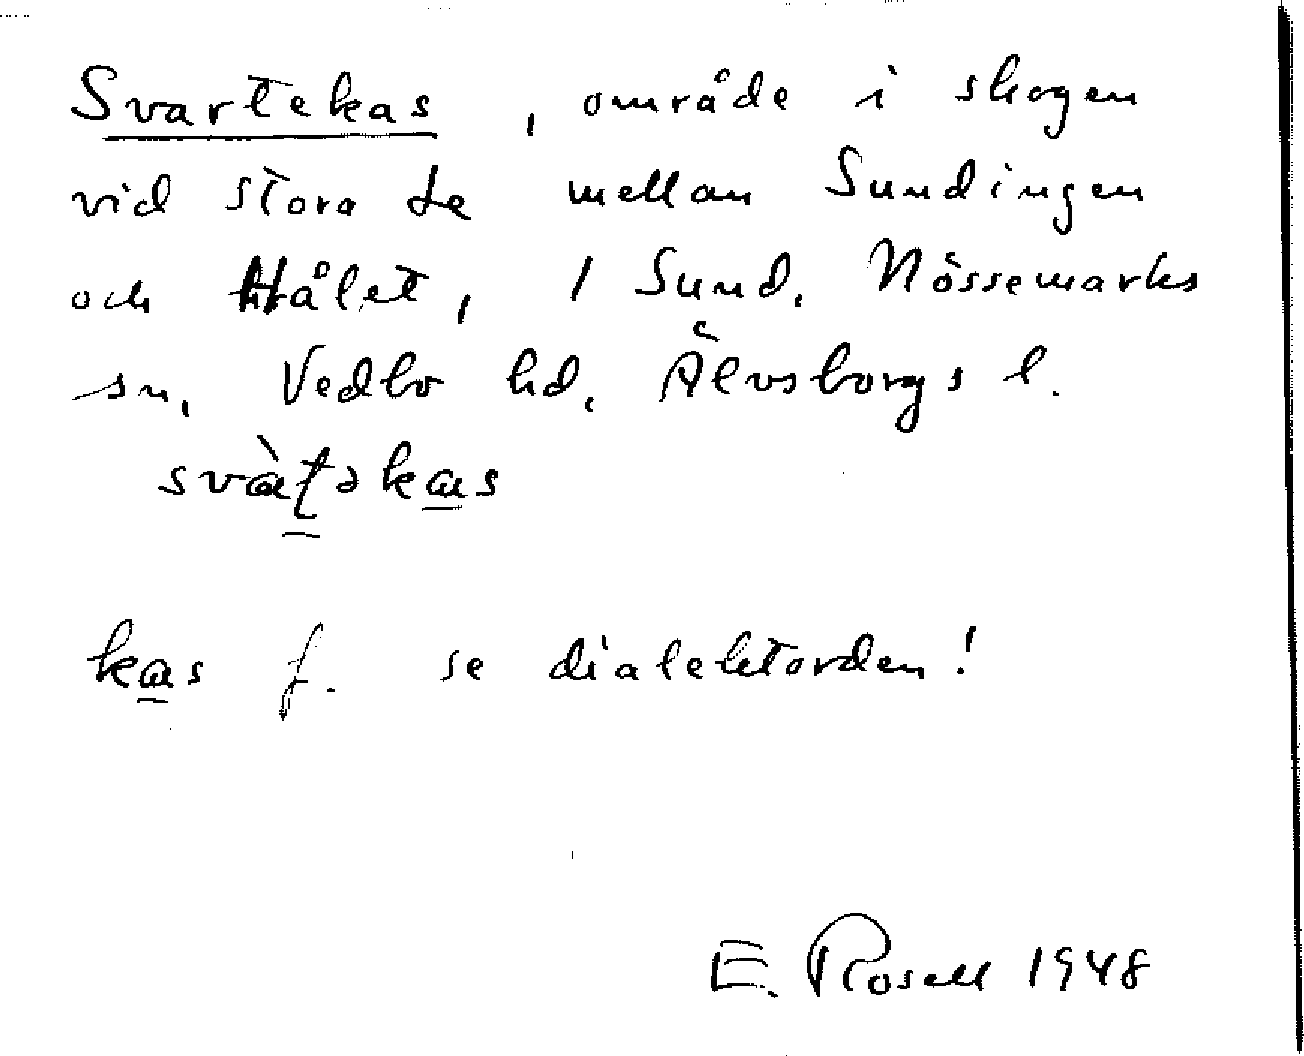 Svartekas, område i skogen
vid Stora Le mellan Sundingen
och Hålet, 1 Sund, Nössemarks
sn, Vedbo hd, Älvsborgs l.
svàt̠əkas
kas f. se dialektorden!
E. Rosell 1948